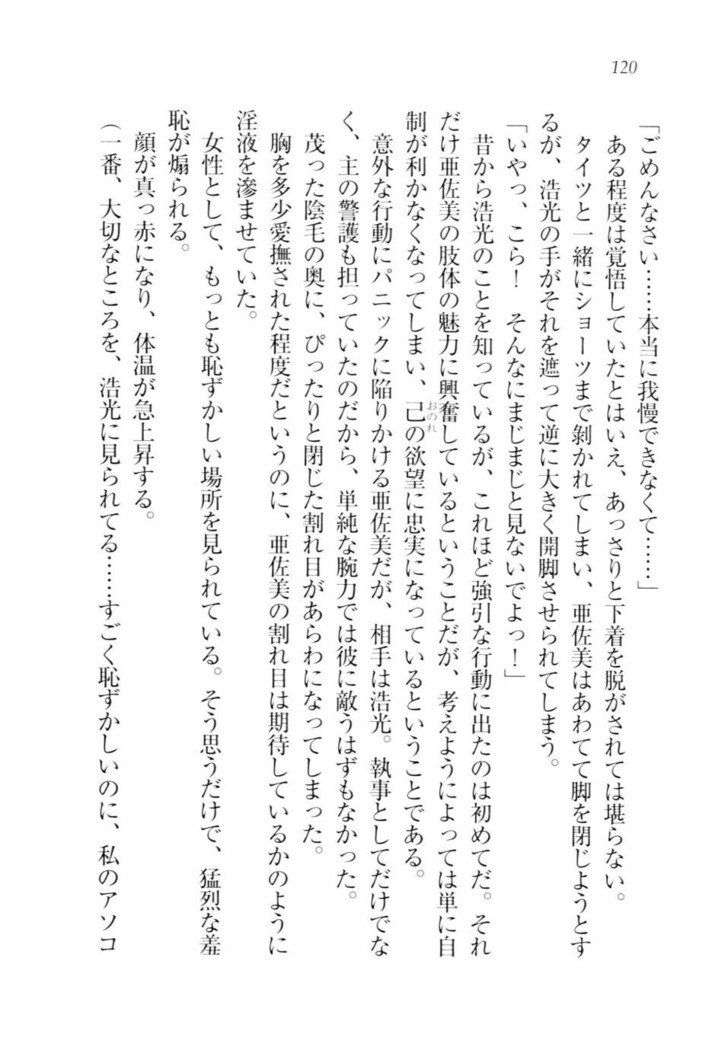 120
「ごめんなさい……本当に我慢できなくて……」
ある程度は覚悟していたとはいえ、あっさりと下着を脱がされては堪らない。
タイツと一緒にショーツまで剝かれてしまい、亜佐美はあわてて脚を閉じようとす
るが、浩光の手がそれを遮って逆に大きく開脚させられてしまう。
「いやっ、こら！　そんなにまじまじと見ないでよっ！」
昔から浩光のことを知っているが、これほど強引な行動に出たのは初めてだ。それ
だけ亜佐美の肢体の魅力に興奮しているということだが、考えようによっては単に自
制が利かなくなってしまい、己おのれの欲望に忠実になっているということである。
意外な行動にパニックに陥りかける亜佐美だが、相手は浩光。執事としてだけでな
く、主の警護も担っていたのだから、単純な腕力では彼に敵うはずもなかった。
茂った陰毛の奥に、ぴったりと閉じた割れ目があらわになってしまった。
胸を多少愛撫された程度だというのに、亜佐美の割れ目は期待しているかのように
淫液を滲ませていた。
女性として、もっとも恥ずかしい場所を見られている。そう思うだけで、猛烈な羞
恥が煽られる。
顔が真っ赤になり、体温が急上昇する。
（一番、大切なところを、浩光に見られてる……すごく恥ずかしいのに、私のアソコ